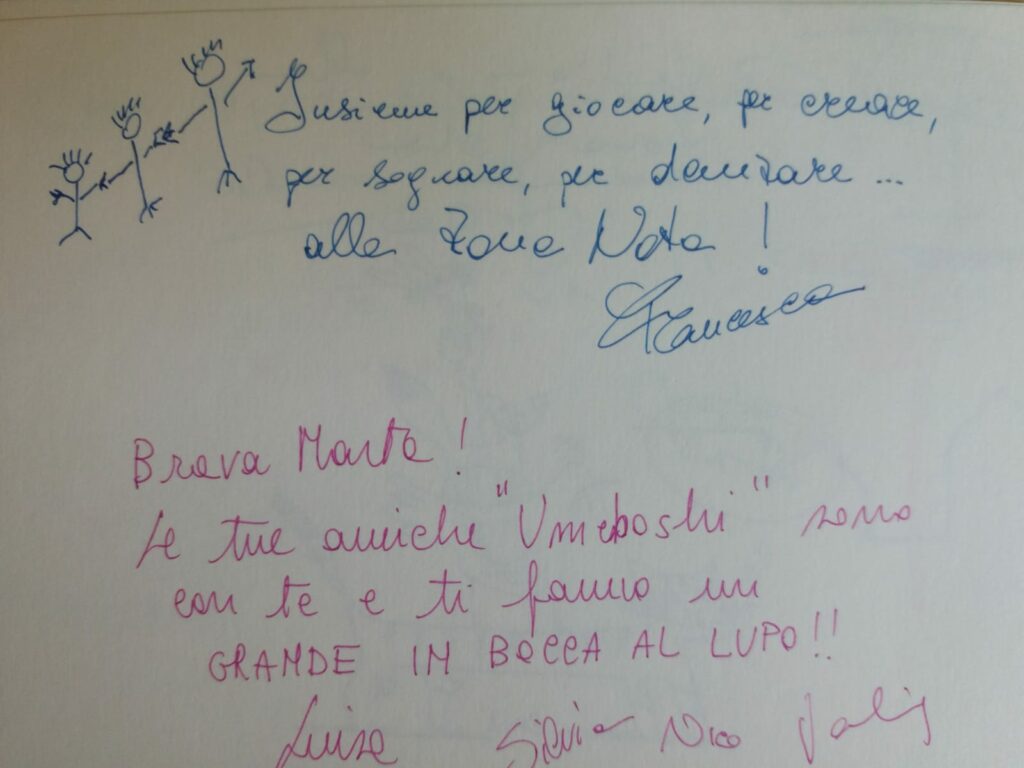 Insieme per giocare, per creare,
per sognare, per danzare ...
alla Zona Nota !
Francesca
Brava Marta !
Le tue amiche "Umeboshi" sono
con te e ti fanno un
GRANDE IN BOCCA AL LUPO!!
Luisa Silvia Nico